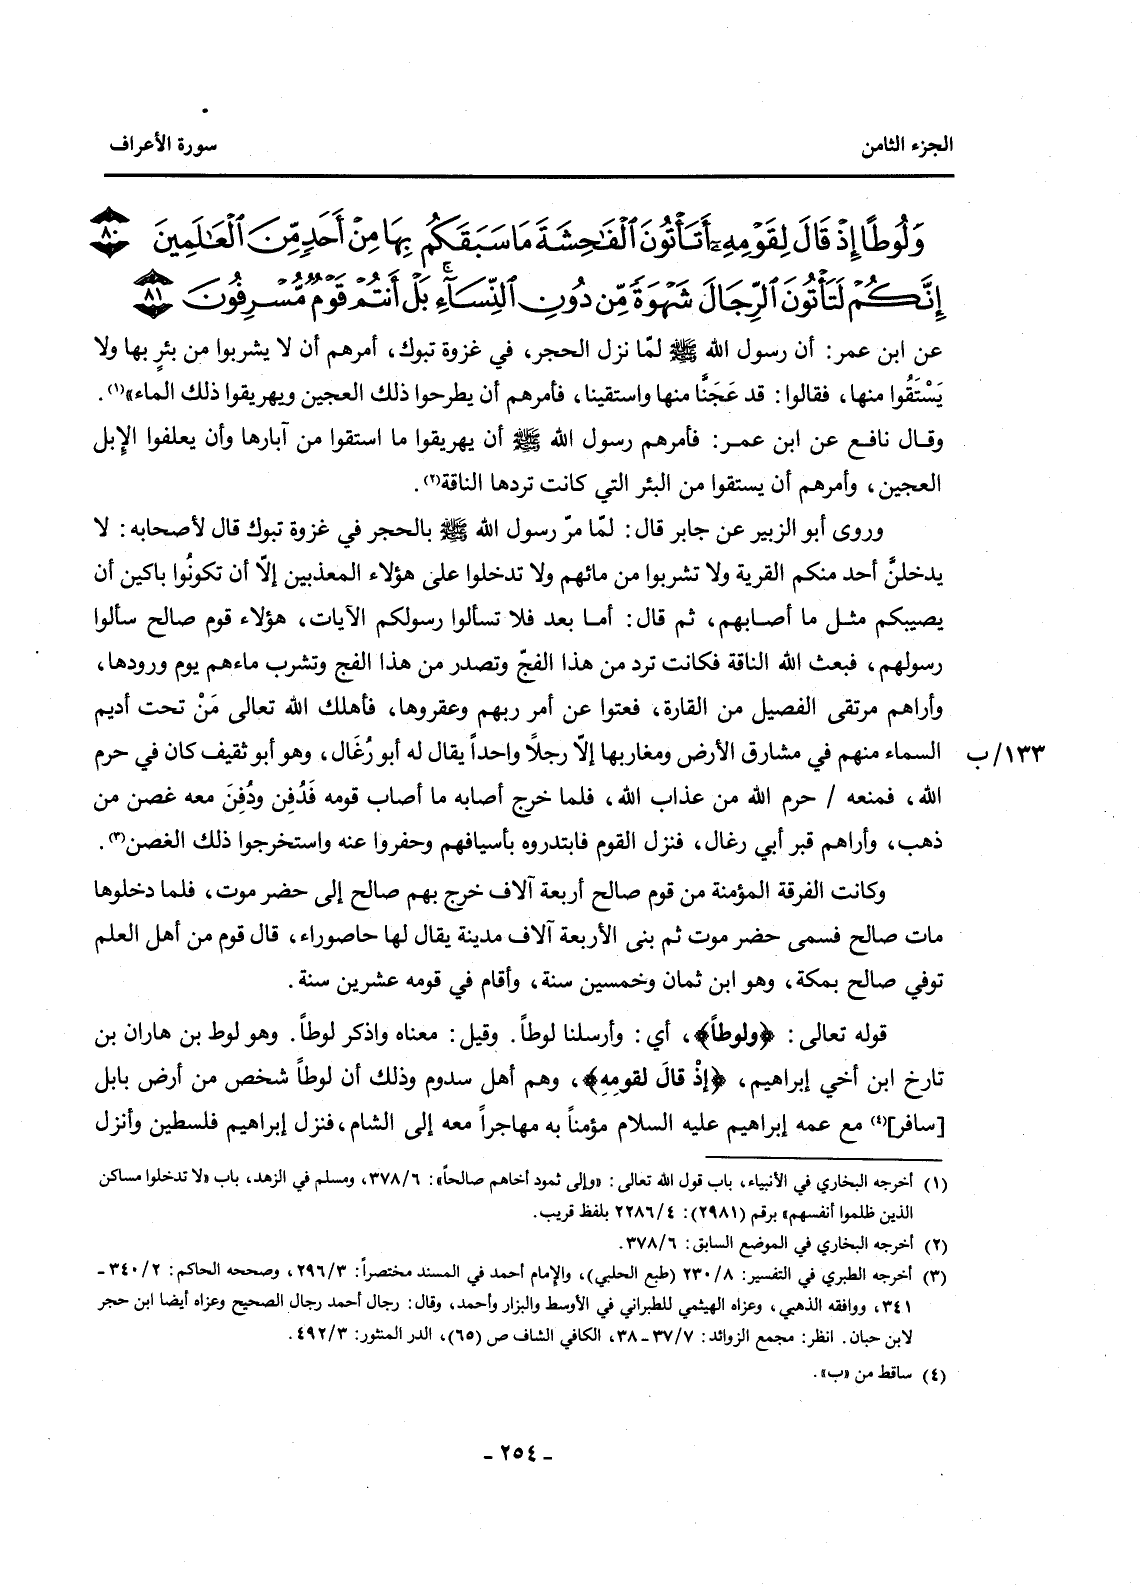 الجزء الثامن
سورة الأعراف
وَلُوطًا إِذْ قَالَ لِقَوْمِهِۦٓ أَتَأْتُونَ ٱلْفَٰحِشَةَ مَا سَبَقَكُم بِهَا مِنْ أَحَدٍ مِّنَ ٱلْعَٰلَمِينَ ٨٠
إِنَّكُمْ لَتَأْتُونَ ٱلرِّجَالَ شَهْوَةً مِّن دُونِ ٱلنِّسَآءِ ۚ بَلْ أَنتُمْ قَوْمٌ مُّسْرِفُونَ ٨١
عن ابن عمر: أن رسول الله ﷺ لمّا نزل الحجر، في غزوة تبوك، أمرهم أن لا يشربوا من بئرٍ بها ولا
يَسْتَقُوا منها، فقالوا: قد عَجَنَّا منها واستقينا، فأمرهم أن يطرحوا ذلك العجين ويهريقوا ذلك الماء»(١).
وقال نافع عن ابن عمر: فأمرهم رسول الله ﷺ أن يهريقوا ما استقوا من آبارها وأن يعلفوا الإبل
العجين، وأمرهم أن يستقوا من البئر التي كانت تردها الناقة(٢).
وروى أبو الزبير عن جابر قال: لمّا مرّ رسول الله ﷺ بالحجر في غزوة تبوك قال لأصحابه: لا
يدخلنَّ أحد منكم القرية ولا تشربوا من مائهم ولا تدخلوا على هؤلاء المعذبين إلّا أن تكونُوا باكين أن
يصيبكم مثل ما أصابهم، ثم قال: أما بعد فلا تسألوا رسولكم الآيات، هؤلاء قوم صالح سألوا
رسولهم، فبعث الله الناقة فكانت ترد من هذا الفجّ وتصدر من هذا الفج وتشرب ماءهم يوم ورودها،
وأراهم مرتقى الفصيل من القارة، فعتوا عن أمر ربهم وعقروها، فأهلك الله تعالى مَنْ تحت أديم
السماء منهم في مشارق الأرض ومغاربها إلّا رجلاً واحداً يقال له أبو رُغَال، وهو أبو ثقيف كان في حرم
١٣٣/ب
الله، فمنعه / حرم الله من عذاب الله، فلما خرج أصابه ما أصاب قومه فَدُفِن ودُفِنَ معه غصن من
ذهب، وأراهم قبر أبي رغال، فنزل القوم فابتدروه بأسيافهم وحفروا عنه واستخرجوا ذلك الغصن(٣).
وكانت الفرقة المؤمنة من قوم صالح أربعة آلاف خرج بهم صالح إلى حضر موت، فلما دخلوها
مات صالح فسمى حضر موت ثم بنى الأربعة آلاف مدينة يقال لها حاصوراء، قال قوم من أهل العلم
توفي صالح بمكة، وهو ابن ثمان وخمسين سنة، وأقام في قومه عشرين سنة.
قوله تعالى: ﴿ولوطاً﴾، أي: وأرسلنا لوطاً. وقيل: معناه واذكر لوطاً. وهو لوط بن هاران بن
تارخ ابن أخي إبراهيم، ﴿إذْ قالَ لقومِهِ﴾، وهم أهل سدوم وذلك أن لوطاً شخص من أرض بابل
[سافر](٤) مع عمه إبراهيم عليه السلام مؤمناً به مهاجراً معه إلى الشام، فنزل إبراهيم فلسطين وأنزل
(١) أخرجه البخاري في الأنبياء، باب قول الله تعالى: «وإلى ثمود أخاهم صالحاً»: ٣٧٨/٦، ومسلم في الزهد، باب «لا تدخلوا مساكن
الذين ظلموا أنفسهم» برقم (٢٩٨١): ٢٢٨٦/٤ بلفظ قريب.
(٢) أخرجه البخاري في الموضع السابق: ٣٧٨/٦.
(٣) أخرجه الطبري في التفسير: ٢٣٠/٨ (طبع الحلبي)، والإمام أحمد في المسند مختصراً: ٢٩٦/٣، وصححه الحاكم: ٣٤٠/٢ -
٣٤١، ووافقه الذهبي، وعزاه الهيثمي للطبراني في الأوسط والبزار وأحمد، وقال: رجال أحمد رجال الصحيح وعزاه أيضا ابن حجر
لابن حبان. انظر: مجمع الزوائد: ٣٧/٧ - ٣٨، الكافي الشاف ص (٦٥)، الدر المنثور: ٤٩٢/٣.
(٤) ساقط من «ب».
- ٢٥٤ -